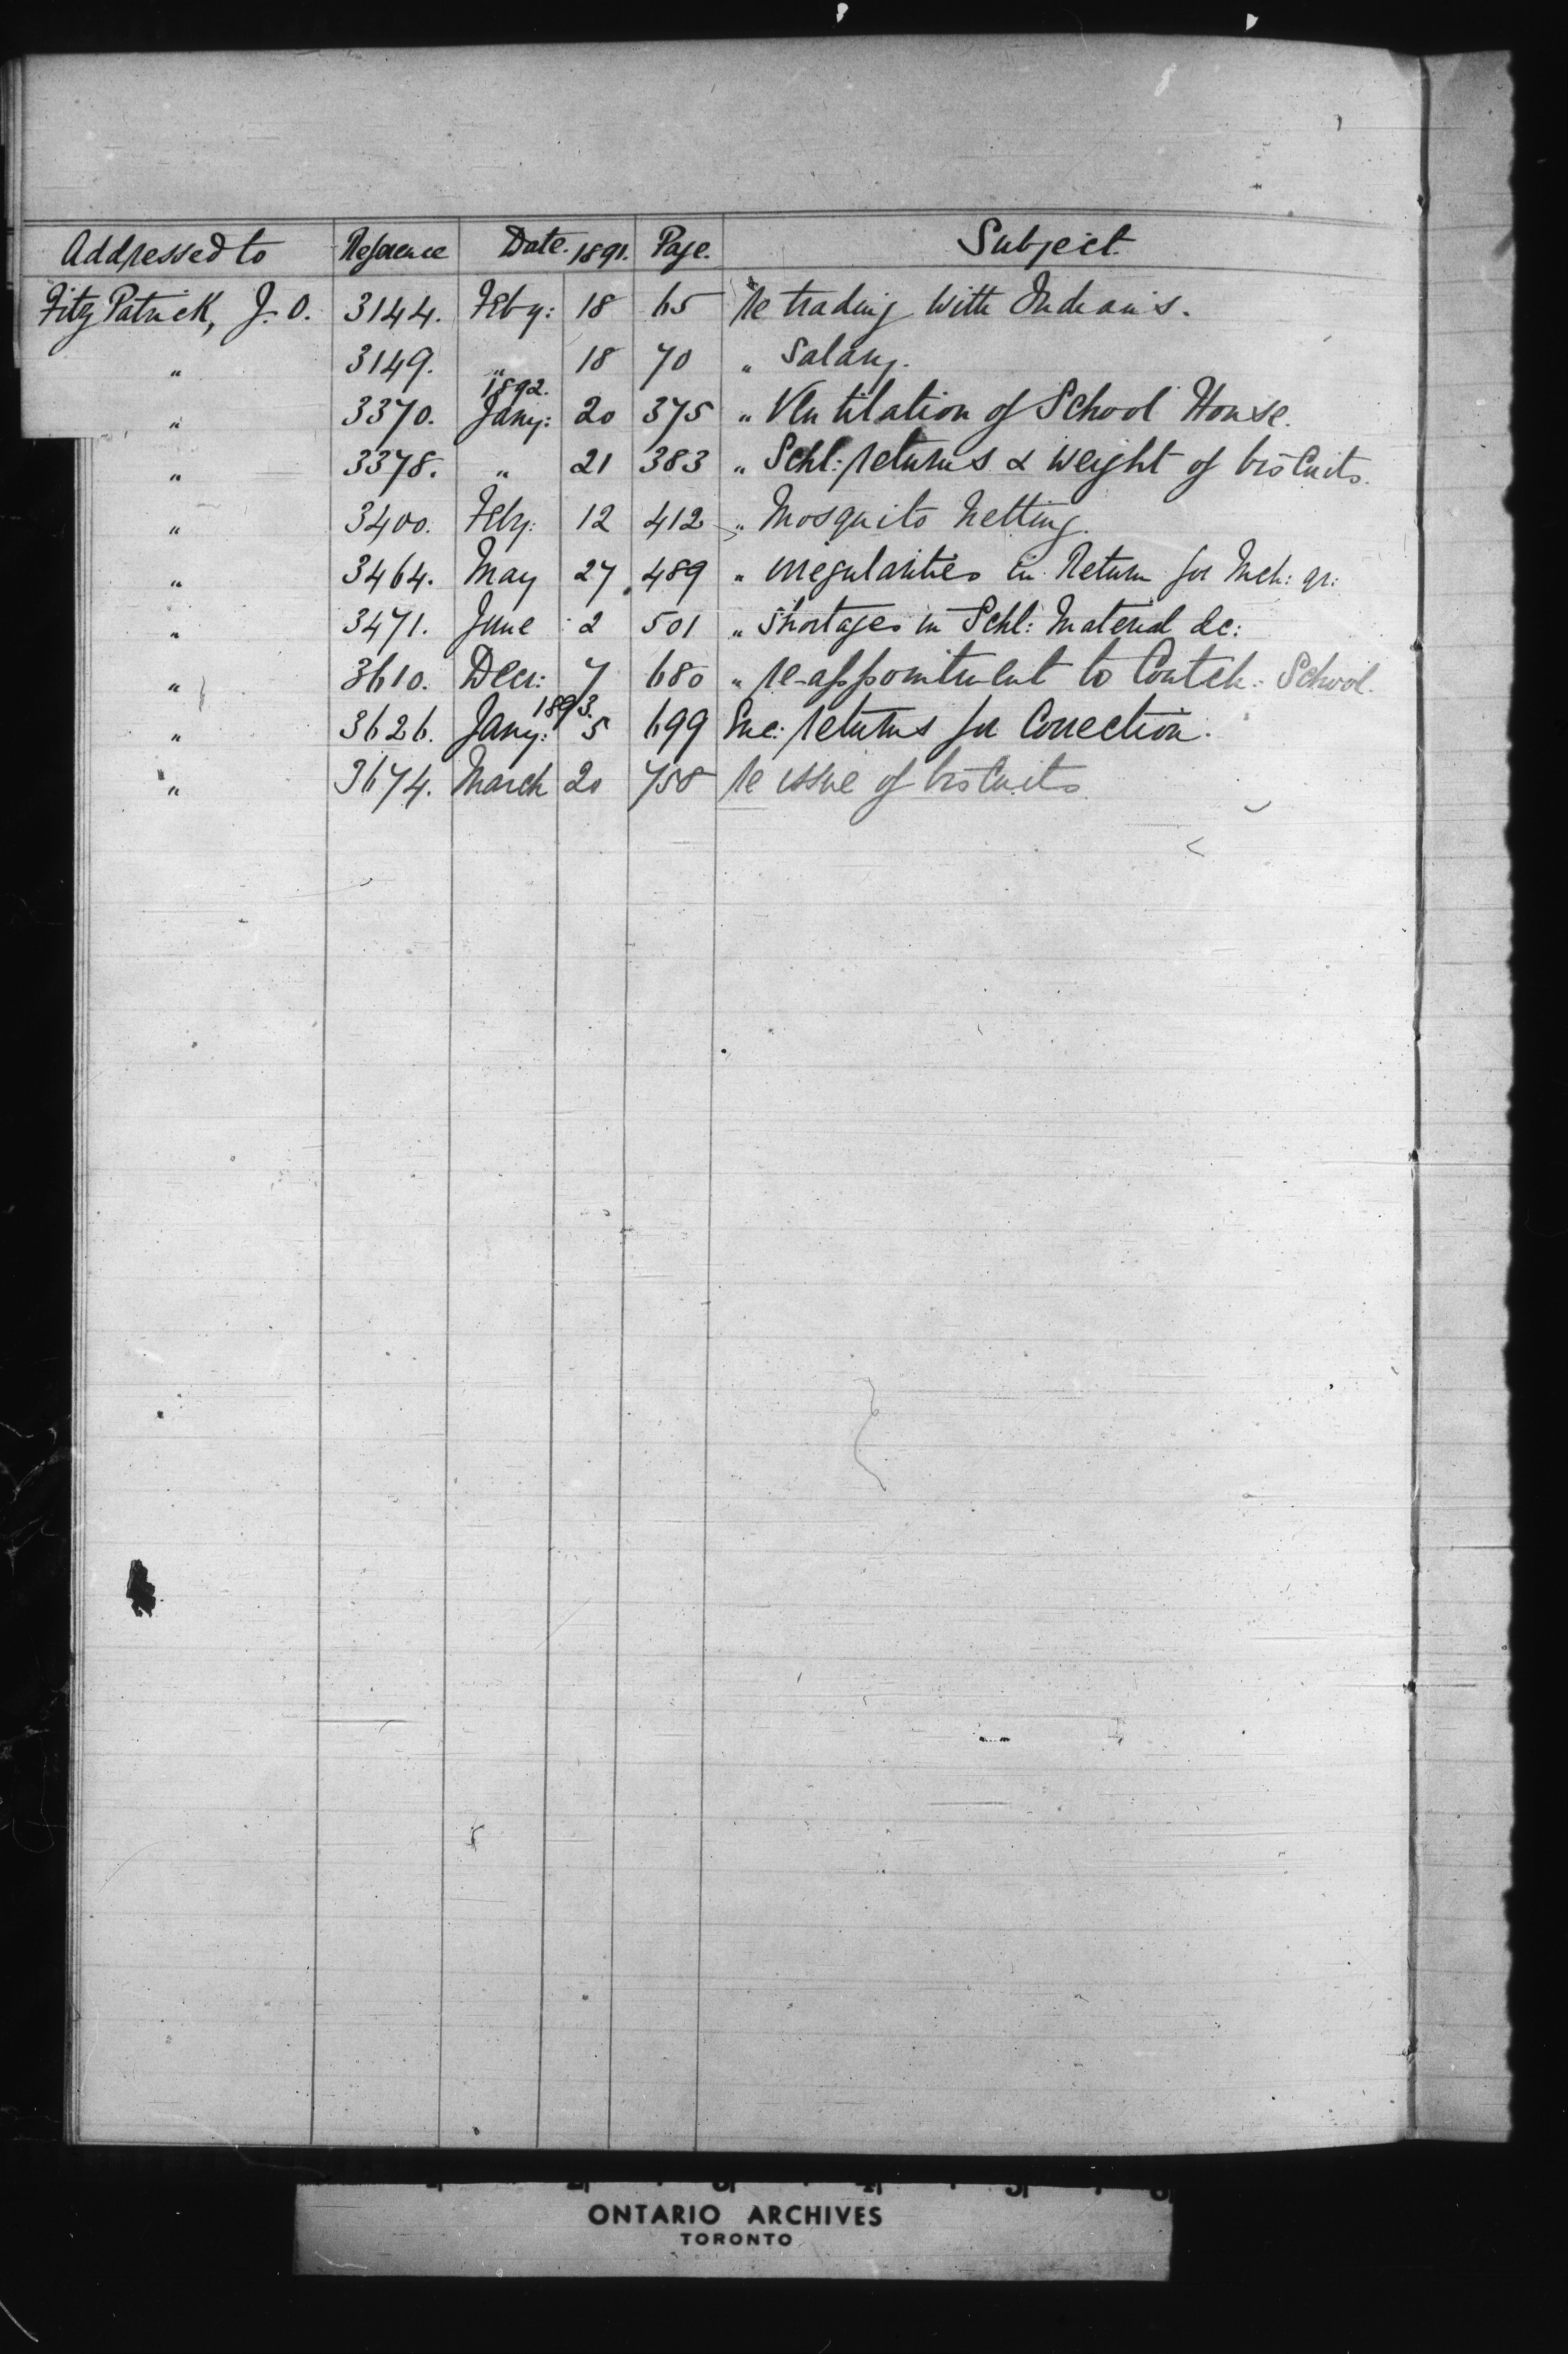 Addressed to Reference Date. 1891. Page. Subject.
FitzPatrick, J. O. 3144. Feby: 18 65 Re trading with Indians.
" 3149. " 18 70 " Salary.
1892.
" 3370. Jany: 20 375 " Ventilation of School House.
" 3378. " 21 383 " Schl: returns & weight of biscuits.
" 3400. Feby: 12 412 " Mosquito Netting.
" 3464. May 27 489 " irregularities in Return for Mch: qr:
" 3471. June 2 501 " Shortages in Schl: Material &c:
" 3610. Decr: 7 680 " re-appointment to Coutch: School.
1893.
" 3626. Jany: 5 699 Enc: returns for Correction.
" 3674. March 20 758 Re issue of biscuits
ONTARIO ARCHIVES
TORONTO